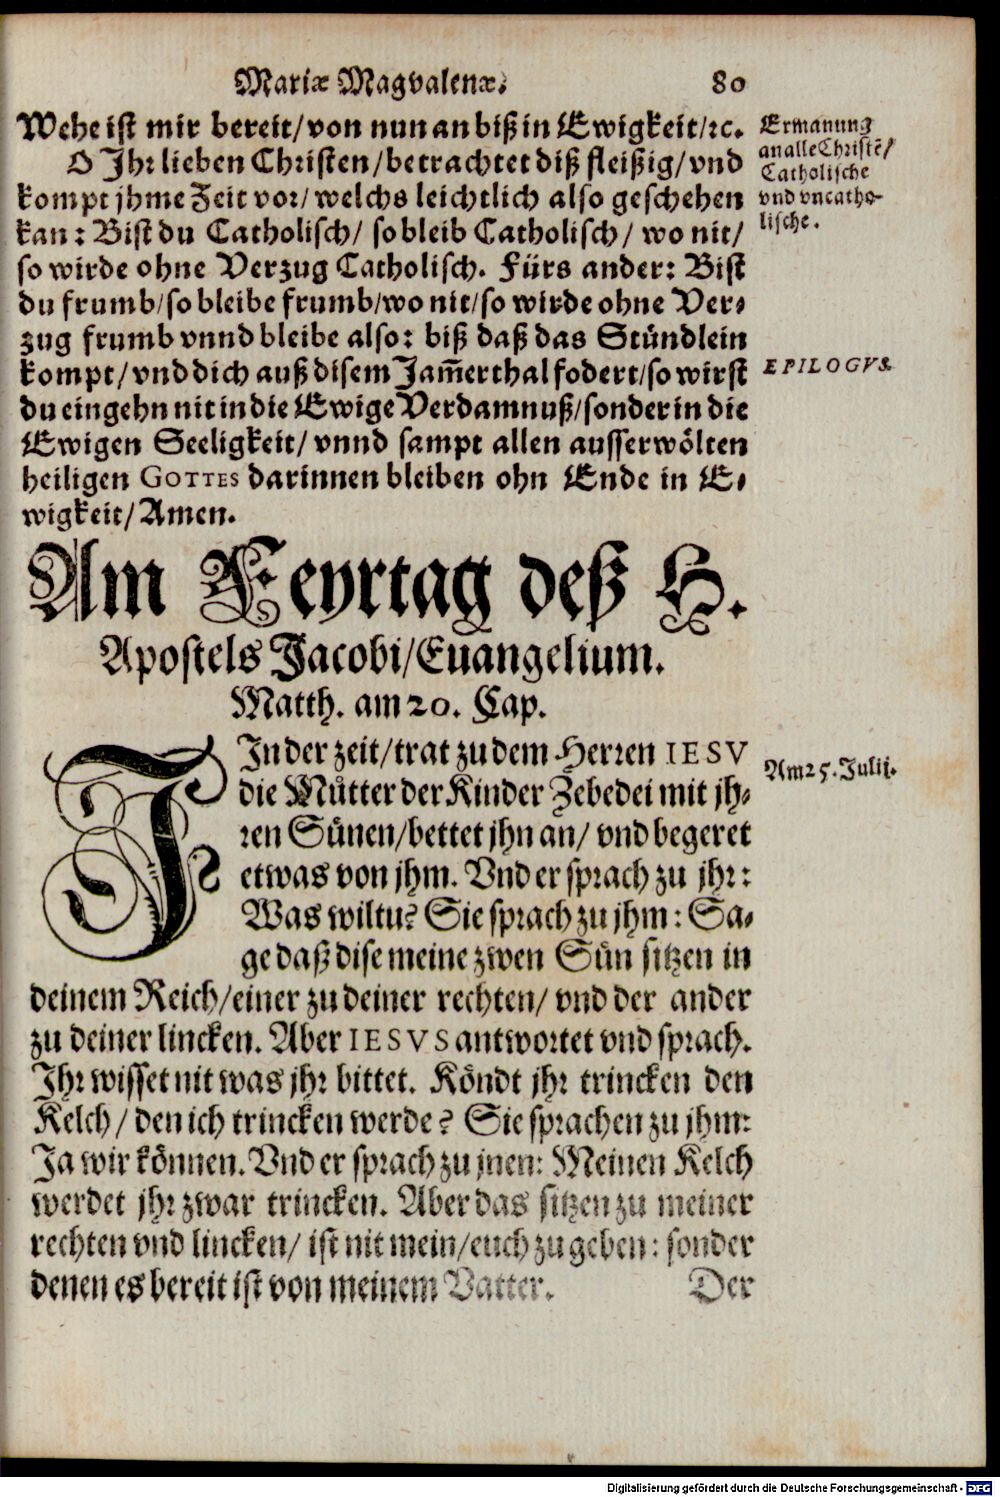 Mariæ Magdalenæ. 80
Wehe ist mir bereit/ von nun an biß in Ewigkeit/ ꝛc.
O Jhr lieben Christen/ betrachtet diß fleißig/ vnd
kompt jhme Zeit vor/ welchs leichtlich also geschehen
kan: Bist du Catholisch/ so bleib Catholisch/ wo nit/
so wirde ohne Verzug Catholisch. Fürs ander: Bist
du frumb/ so bleibe frumb/ wo nit/ so wirde ohne Ver-
zug frumb vnnd bleibe also: biß daß das Stündlein
kompt/ vnd dich auß disem Jam̃erthal fodert/ so wirst
du eingehn nit in die Ewige Verdamnuß/ sonder in die
Ewigen Seeligkeit/ vnnd sampt allen ausserwölten
heiligen GOTTES darinnen bleiben ohn Ende in E-
wigkeit/ Amen.
Ermanung
an alle Christẽ/
Catholische
vnd vncatho-
lische.
EPILOGVS.
Am Feyrtag deß H.
Apostels Jacobi/ Euangelium.
Matth. am 20. Cap.
Am 25. Julij.
JN der zeit/ trat zu dem Herren IESV
die Můtter der Kinder Zebedei mit jh-
ren Sünen/ bettet jhn an/ vnd begeret
etwas von jhm. Vnd er sprach zu jhr:
Was wiltu? Sie sprach zu jhm: Sa-
ge daß dise meine zwen Sün sitzen in
deinem Reich/ einer zu deiner rechten/ vnd der ander
zu deiner lincken. Aber IESVS antwortet vnd sprach.
Jhr wisset nit was jhr bittet. Köndt jhr trincken den
Kelch/ den ich trincken werde? Sie sprachen zu jhm:
Ja wir können. Vnd er sprach zu jnen: Meinen Kelch
werdet jhr zwar trincken. Aber das sitzen zu meiner
rechten vnd lincken/ ist nit mein/ euch zu geben: sonder
denen es bereit ist von meinem Vatter. Der
Digitalisierung gefördert durch die Deutsche Forschungsgemeinschaft - DFG